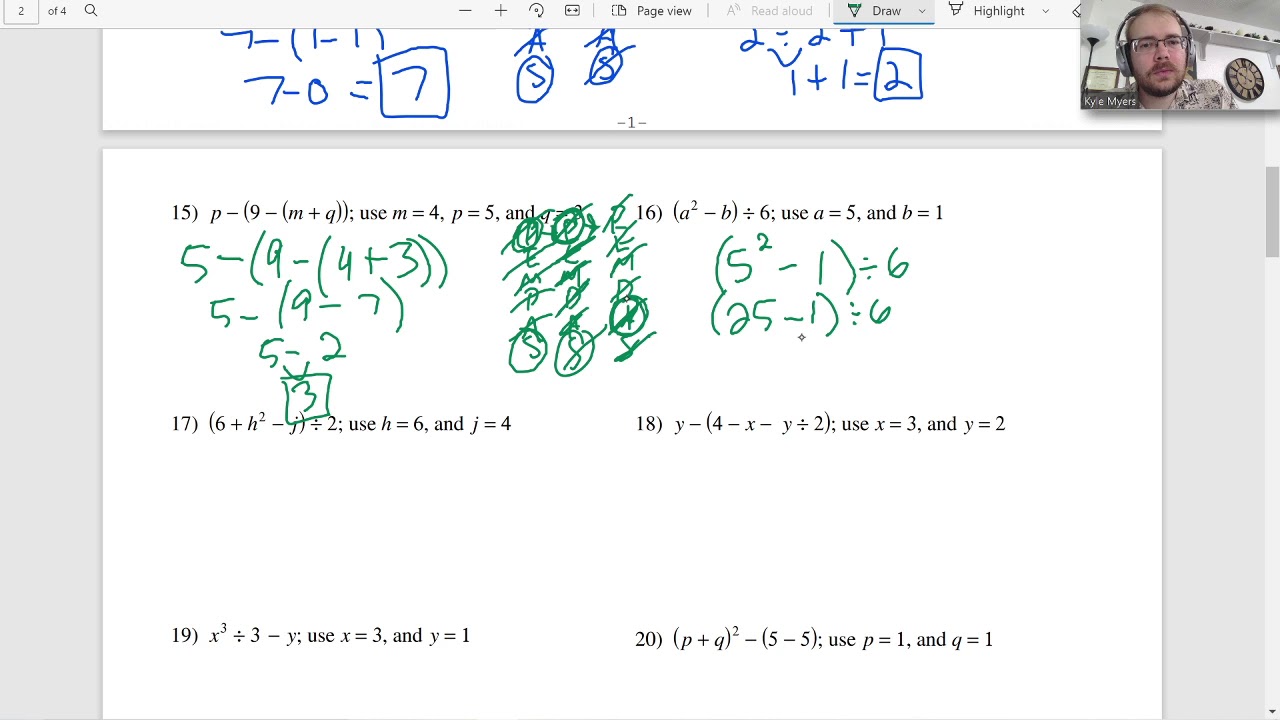 2 of 4 Page view Read aloud Draw Highlight
7-(1-1)
7-0 = 7
A A
S S
2 ÷ 2 + 1
1 + 1 = 2
Kyle Myers
-1-
15) p − (9 − (m + q)); use m = 4, p = 5, and q = 3
5 - (9 - (4 + 3))
5 - (9 - 7)
5 - 2
3
P P P
E E E
M M M
D D D
A A A
S S S
16) (a² − b) ÷ 6; use a = 5, and b = 1
(5² - 1) ÷ 6
(25 - 1) ÷ 6
17) (6 + h² − j) ÷ 2; use h = 6, and j = 4
18) y − (4 − x − y ÷ 2); use x = 3, and y = 2
19) x³ ÷ 3 − y; use x = 3, and y = 1
20) (p + q)² − (5 − 5); use p = 1, and q = 1